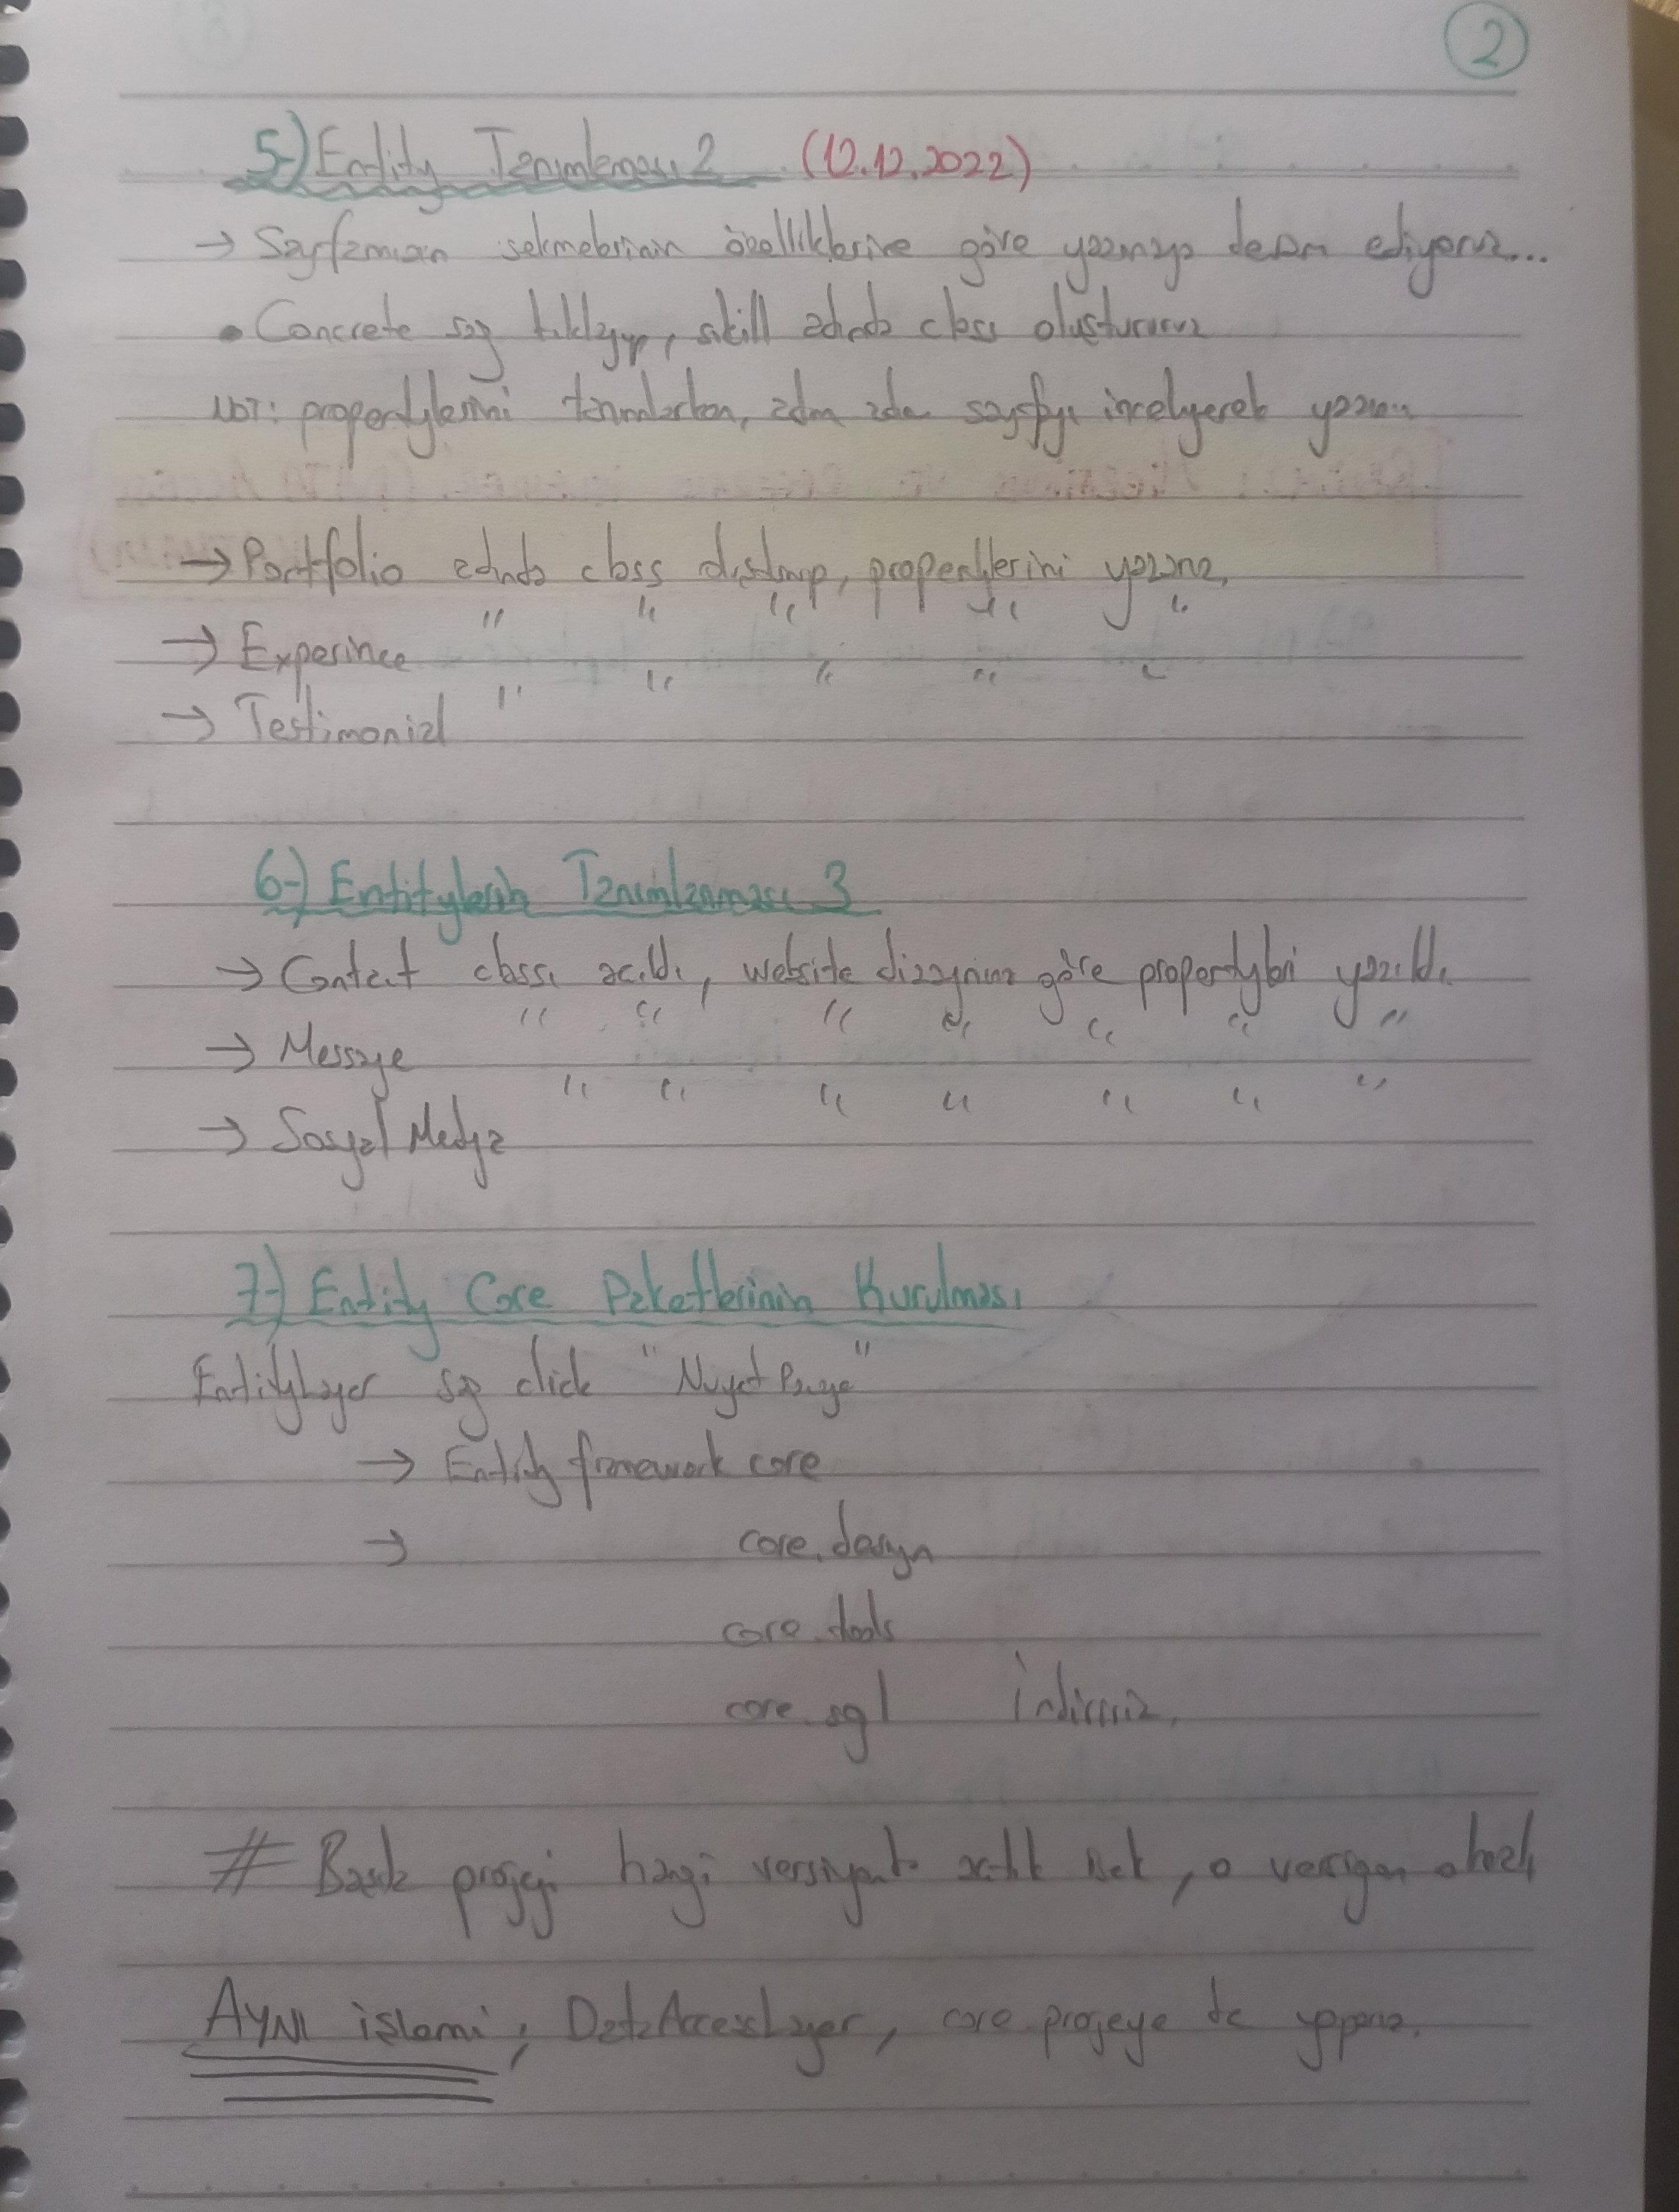 2
5-) Entity Tanımlaması 2 (12.12.2022)
→ Sayfamızın sekmelerinin özelliklerine göre yazmaya devam ediyoruz...
• Concrete sağ tıklayıp, skill adında class oluştururuz
NOT: propertylerini tanımlarken, adım adım sayfayı inceleyerek yazarız
→ Portfolio adında class oluşturup, propertylerini yazarız.
→ Experince " " " " "
→ Testimonial " " " " "
6-) Entitylerin Tanımlanması 3
→ Contact classı açıldı, website dizaynına göre propertyleri yazıldı.
→ Message " " " " " " "
→ Sosyal Medya " " " " " " "
7-) Entity Core Paketlerinin Kurulması
EntityLayer sağ click "Nuget Page"
→ Entity framework core
→ core.design
core.tools
core.sql İndiririz.
# Başta projeyi hangi versiyonda açtık isek, o versiyon olmalı
AYNI işlemi; DataAccessLayer, core projeye de yaparız.